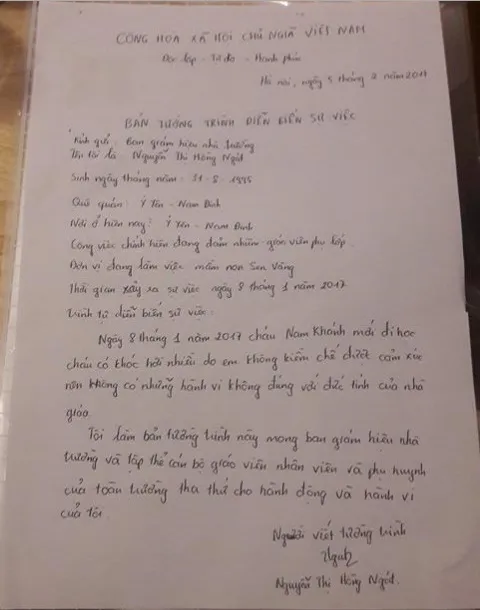 CỘNG HÒA XÃ HỘI CHỦ NGHĨA VIỆT NAM
Độc lập - Tự do - Hạnh phúc
Hà nội, ngày 5 tháng 2 năm 2017
BẢN TƯỜNG TRÌNH DIỄN BIẾN SỰ VIỆC
Kính gửi: Ban giám hiệu nhà trường
Tên tôi là Nguyễn Thị Hồng Ngát
Sinh ngày tháng năm: 31 - 8 - 1995
Quê quán: Ý Yên - Nam Định
Nơi ở hiện nay: Ý Yên - Nam Định
Công việc chính hiện đang đảm nhiệm: giáo viên phụ lớp.
Đơn vị đang làm việc mầm non Sen Vàng
Thời gian xảy ra sự việc ngày 8 tháng 1 năm 2017
Trình tự diễn biến sự việc:
Ngày 8 tháng 1 năm 2017 cháu Nam Khánh mới đi học
cháu có khóc hơi nhiều do em không kiềm chế được cảm xúc
nên không có những hành vi không đúng với đức tính của nhà
giáo.
Tôi làm bản tường trình này mong ban giám hiệu nhà
trường và tập thể cán bộ giáo viên nhân viên và phụ huynh
của toàn trường tha thứ cho hành động và hành vi
của tôi.
Người viết tường trình
Ngát
Nguyễn Thị Hồng Ngát.